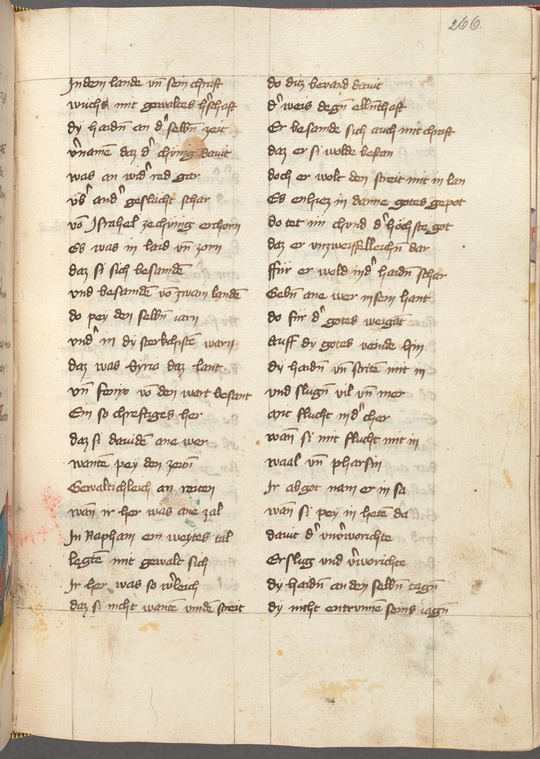 266.
In dem lande vn̄ sein chraft
wuchs mit gewaltes hʾschaft
dy haidn̄ an dʾ selbn̄ zeit
vʾnamē daz dʾ chünig dauit
was an widʾ red gar
vbʾ andʾ geslächt schar
vō Israhel ze chünig erchorn
Es was in laid vn̄ zorn
daz si sich besandē
vnd besandē vō zwain landē
do pey den selbn̄ iarn
vndʾ in dy sterkchistē warn
daz was Syria daz lant
vn̄ Fenix vō den wart besant
Ein so chreftiges her
daz si dauidē ane wer
wantē pey den zeitn̄
Gewaltichleich an reiten
wan̄ ir her was ane zal
In Raphaim ein weytes tal
legtē mit gewalt sich
Ir her was so vʾleich
daz si nicht wantē vindē streit
do ditz bevand dauit
dʾ weis degn̄ ellnthaft
Er besande sich auch mit chraft
daz er si wolde bestan
doch er wolt den streit nit in lan
Es enhiez in danne gotes gepot
do tet im chund dʾ höchste got
daz er vnzweiffelleichn̄ dar
ffür er wold in dʾ haidn̄ schar
Gebn̄ ane wer in sein hant
do für dʾ gotes weigāt
Auff dy gotes veinde hin
dy haidn̄ vn̄ streitē mit in
vnd slugn̄ vil vn̄ mer
mit flucht in dʾ cher
wan̄ si mit flucht mit in
waal vn̄ pharsin
Ir abgot nam er in sa
wan̄ si pey in hetē da
dauit dʾ vnvʾworichte
Er slug vnd vʾworichte
dy haidn̄ an den selbn̄ tagn̄
dy nicht entrunnē seins iagn̄